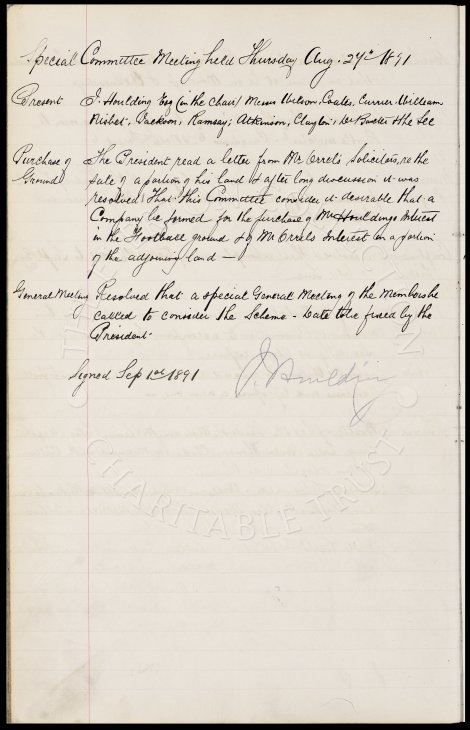 Special Committee Meeting held Thursday Aug. 27th 1891
Present J. Houlding Esq (in the chair) Messrs Wilson, Coates, Currier, William
Nisbet, Jackson, Ramsay, Atkinson, Clayton, Dr Baxter & the Sec
Purchase of Ground
The President read a letter from Mr Orrels, Solicitors, re the
sale of a portion of his land & after long discussion it was
resolved That this Committee consider it desirable that a
Company be formed for the purchase of Mr Houldings Interest
in the Football ground & of Mr Orrels Interest in a portion
of the adjoining land —
General Meeting Resolved that a special General Meeting of the Members be
called to consider the Scheme - Date to be fixed by the
President.
Signed Sep 1st 1891 J. Houlding
CHARITABLE TRUST